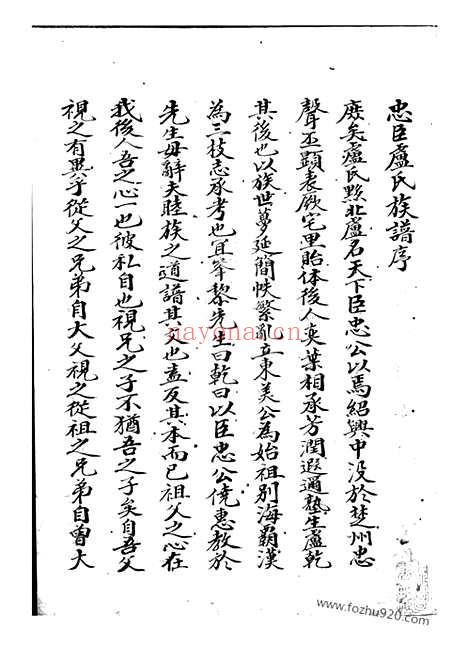 忠臣盧氏族譜序
庶矣盧氏黟北盧名天下臣忠公以焉紹興中没於楚州忠
聲丕顯表厥宅里胎体後人奕葉相承芳潤遐通塾生盧乾
其後也以族世蔓延簡帙繁亂立東美公為始祖別海霸漢
為三枝志承考也宜峯黎先生曰乾曰以臣忠公僥惠教於
先生毋辭夫睦族之道譜其次也盖反其本而已祖父之心在
我後人吾之心一也彼私自也視兄之子不猶吾之子矣自吾父
視之有異乎從父之兄弟自大父視之從祖之兄弟自曾大
nayona.cn
www.fozhu920.com